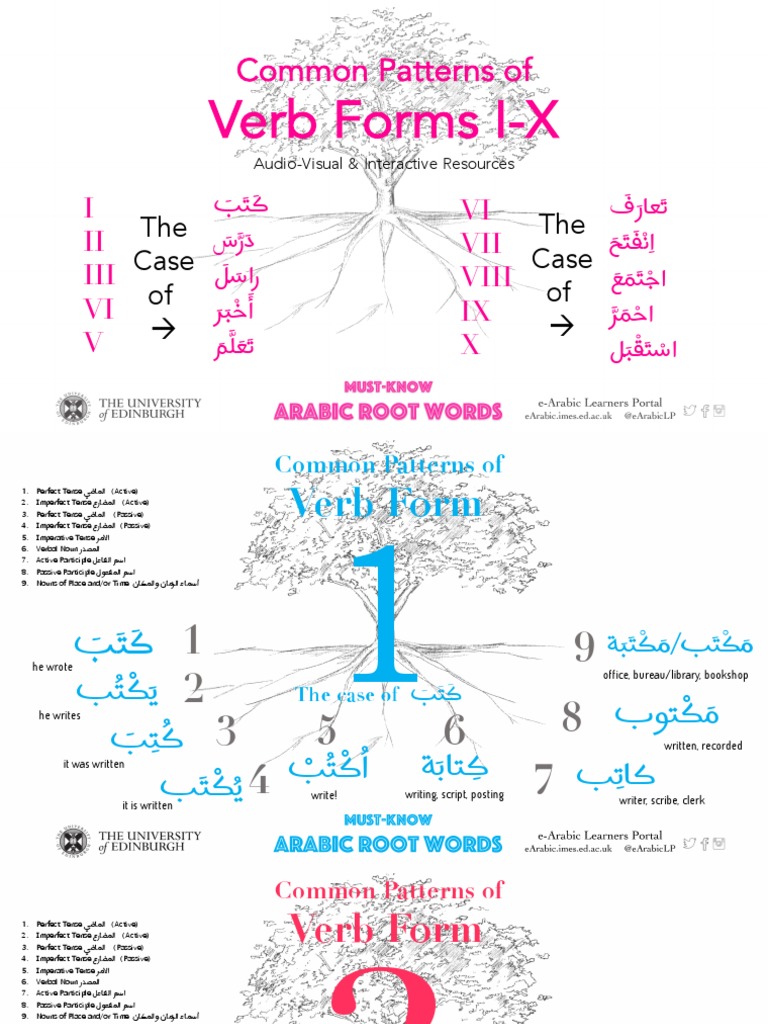 Common Patterns of
Verb Forms I-X
Audio-Visual & Interactive Resources
I
II
III
VI
V
The
Case
of
→
كَتَبَ
دَرَّسَ
راسَلَ
أَخْبَرَ
تَعَلَّمَ
VI
VII
VIII
IX
X
The
Case
of
→
تَعارَفَ
اِنْفَتَحَ
اجْتَمَعَ
احْمَرَّ
اسْتَقْبَل
THE UNIVERSITY
of EDINBURGH
MUST-KNOW
ARABIC ROOT WORDS
e-Arabic Learners Portal
eArabic.imes.ed.ac.uk @eArabicLP
Common Patterns of
Verb Form
1
The case of كَتَبَ
1. Perfect Tense الماضي (Active)
2. Imperfect Tense المضارع (Active)
3. Perfect Tense الماضي (Passive)
4. Imperfect Tense المضارع (Passive)
5. Imperative Tense الأمر
6. Verbal Noun المصدر
7. Active Participle اسم الفاعل
8. Passive Participle اسم المفعول
9. Nouns of Place and/or Time أسماء الزمان والمكان
كَتَبَ 1
he wrote
يَكْتُب 2
he writes
كُتِبَ 3
it was written
يُكْتَب 4
it is written
5
اُكْتُبْ
write!
6
كِتابَة
writing, script, posting
7 كاتِب
writer, scribe, clerk
8 مَكْتوب
written, recorded
9 مَكْتَب/مَكْتَبة
office, bureau/library, bookshop
THE UNIVERSITY
of EDINBURGH
MUST-KNOW
ARABIC ROOT WORDS
e-Arabic Learners Portal
eArabic.imes.ed.ac.uk @eArabicLP
Common Patterns of
Verb Form
1. Perfect Tense الماضي (Active)
2. Imperfect Tense المضارع (Active)
3. Perfect Tense الماضي (Passive)
4. Imperfect Tense المضارع (Passive)
5. Imperative Tense الأمر
6. Verbal Noun المصدر
7. Active Participle اسم الفاعل
8. Passive Participle اسم المفعول
9. Nouns of Place and/or Time أسماء الزمان والمكان